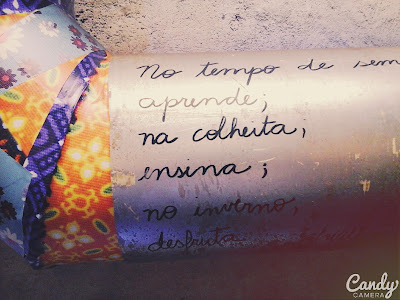 No tempo de sem
aprende;
na colheita,
ensina;
no inverno,
desfruta
Candy
CAMERA